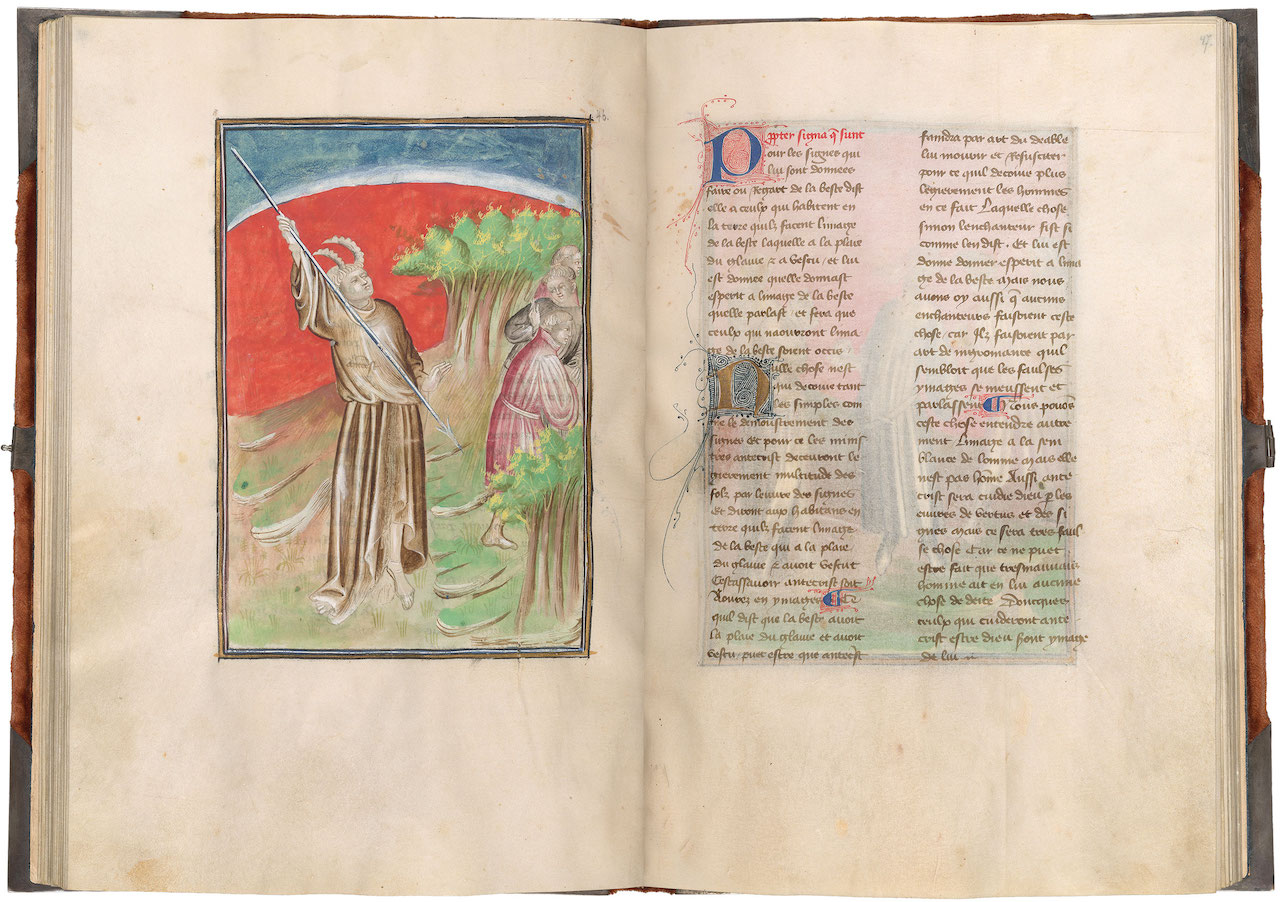 46.
47.
Propter signa q̄ sunt
Pour les signes qui
lui sont donnees
faire ou regart de la beste dist
elle a ceulx qui habitent en
la terre quilz facent limage
de la beste laquelle a la plaie
du glaiue z a vescu / et lui
est donnee quelle donnast
esperit a limage de la beste
quelle parlast / et fera que
ceulx qui naourront lima
ge de la beste soient occis
Nulle chose nest
qui decoiue tant
les simples com
me le demoustrement des
signes Et pour ce les minis
tres antecrist deceuront le
gierement multitude des
folz par leuure des signes
Et diront aux habitans en
terre quilz facent limage
de la beste qui a la plaie
du glaiue z auoit vescut
Cestassauoir antecrist soit
Aourez en ymages Et ce
quil dist que la beste auoit
la plaie du glaiue et auoit
vescu / puet estre que antecrist
faindra par art du deable
lui mourir et resusciter
pour ce quil decoiue plus
legierement les hommes
en ce fait Laquelle chose
simon lenchanteur fist si
comme len dist . Et lui est
donne donner esperit a lima
ge de la beste Mais nous
auons oy aussi q̄ aucuns
enchanteurs faisoient ceste
chose / car Ilz faisoient par
art de nigromance quil
sembloit que les faulses
ymages se meussent et
parlassent Nous pouōs
ceste chose entendre autre
ment Limage a la sem
blance de lomme mais elle
nest pas hōme Aussi ante
crist sera cuidie dieu p les
euures de vertus et des si
gnes mais ce sera tres faul
se chose Car ce ne puet
estre fait que tresmauuais
homme ait en lui aucune
chose de deite Doncques
ceulx qui cuideront ante
crist estre dieu font ymage
de lui